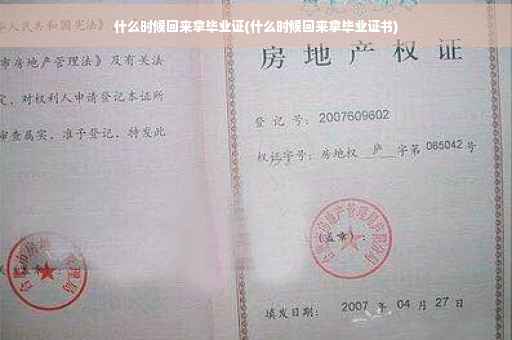 什么时候回来拿毕业证(什么时候回来拿毕业证书)
华人民共和国宪法》
市房地产管理法》及有关法
定，对权利人申请登记本证所
审查属实，准予登记，特发此
房地产权证
登记号：2007609602
权证字号：房地权 庐 字第 065042 号
(盖章)：
填发日期：2007 年 04 月 27 日